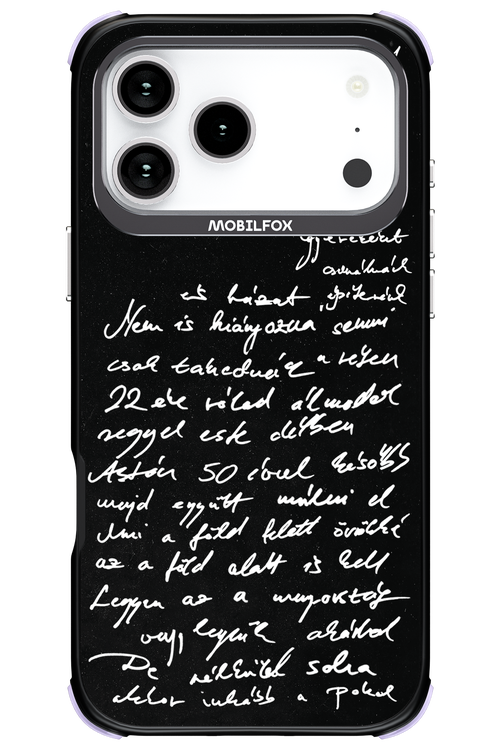 MOBILFOX
gyereket
csinálnánk
és házat építenénk
Nem is hiányozna semmi
csak takednék a réten
22 éve rólad álmodok
reggel este délben
Aztán 50 évvel később
majd együtt múlni el
Ami a föld felett örökké
az a föld alatt is kell
Legyen az a mennyország
vagy legyünk akárhol
De nélküled soha
akkor inkább a pokol